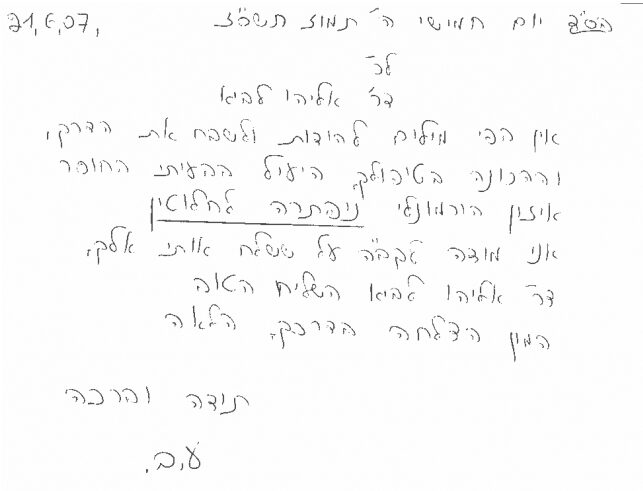 בס"ד יום חמישי ה' תמוז תשס"ז 21,6,07,
לכ'
דר' אליהו לביא
אין בפי מילים להודות ולשבח את הדרך,
וההכוונה בטיפולך, היעיל בבעיתי החוסר
איזון הורמונלי ניפתרה לחלוטין
אני מודה לקב"ה על ששלח אותי אלך,
דר' אליהו לביא השליח הטוב
המון הצלחה בדרכך, הלאה
תודה וברכה
ע,ב,